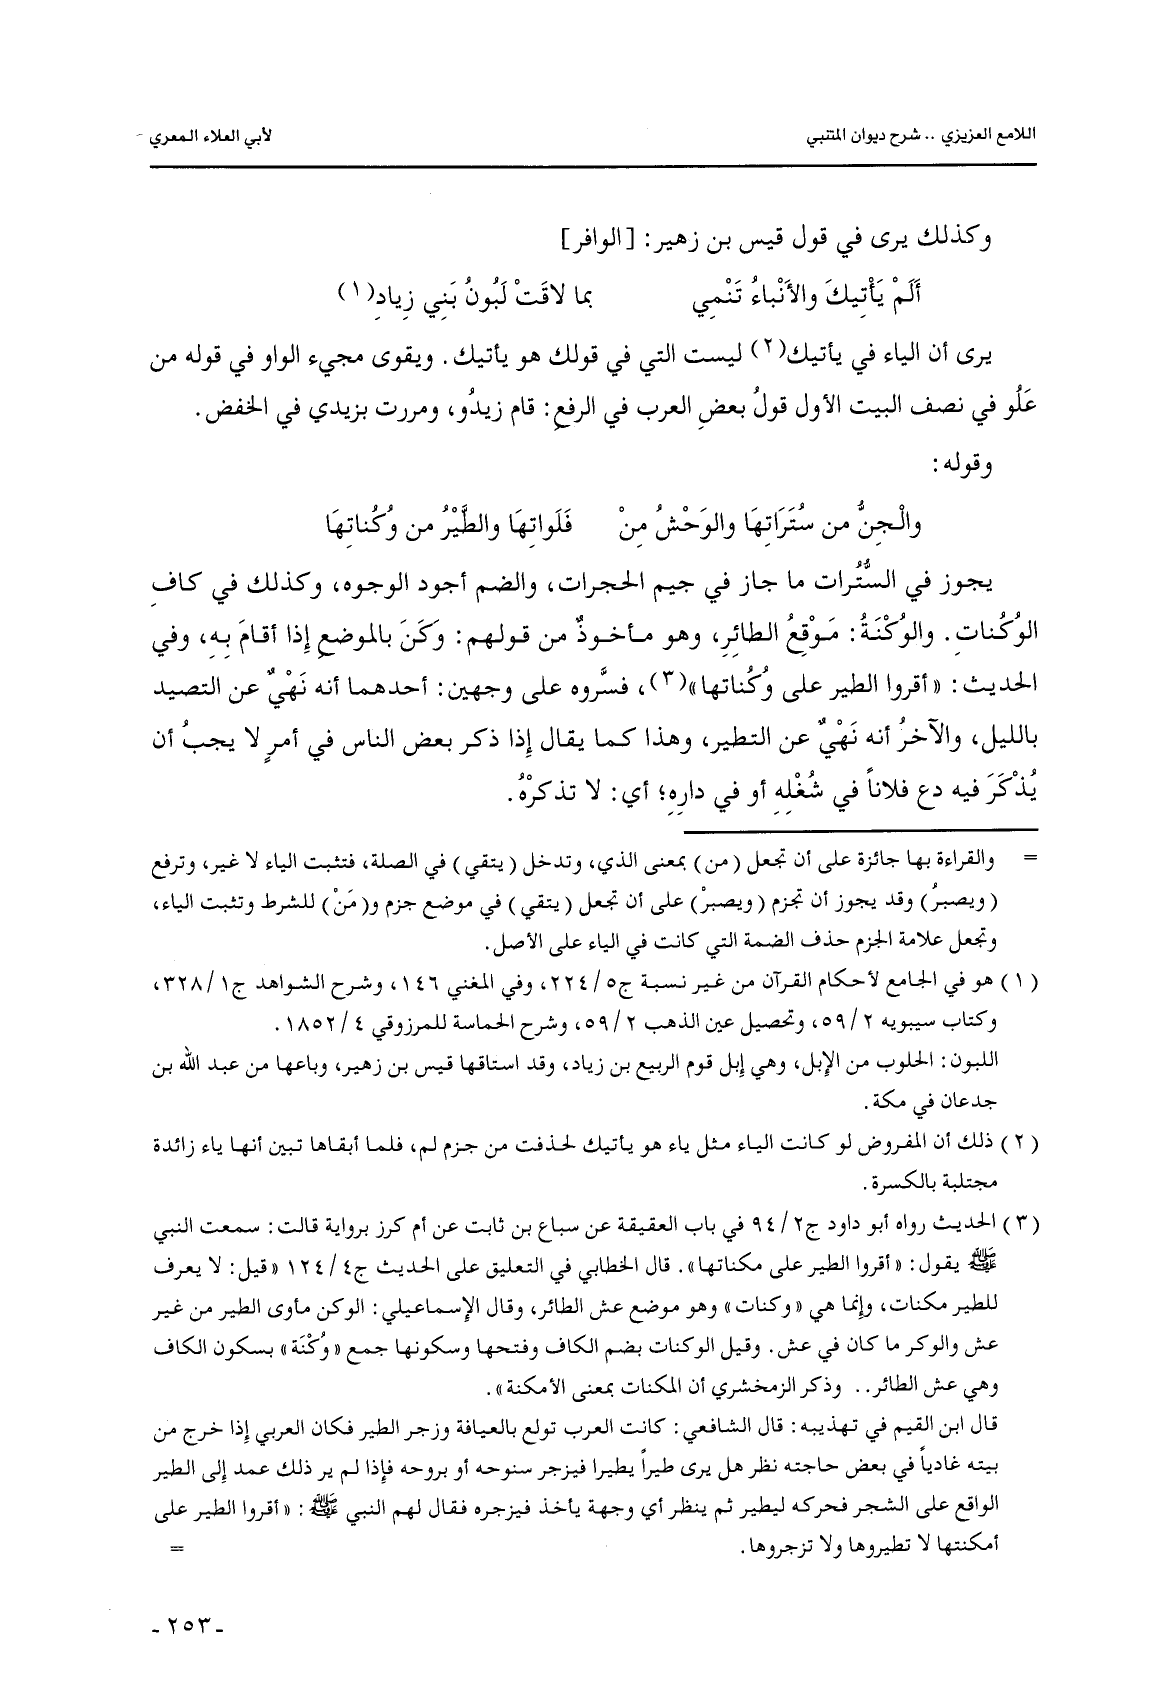 اللامع العزيزي .. شرح ديوان المتنبي لأبي العلاء المعري
وكذلك يرى في قول قيس بن زهير: [الوافر]
أَلَمْ يَأْتِيكَ والأَنْباءُ تَنْمِي بما لاقَتْ لَبُونُ بَنِي زِيادِ(١)
يرى أن الياء في يأتيك(٢) ليست التي في قولك هو يأتيك. ويقوى مجيء الواو في قوله من
عَلُو في نصف البيت الأول قولُ بعضِ العرب في الرفعِ: قام زيدُو، ومررت بزيدي في الخفض.
وقوله:
والْجِنُّ من سُتَرَاتِهَا والوَحْشُ مِنْ فَلَواتِهَا والطَّيْرُ من وُكُناتِهَا
يجوز في السُّتُرات ما جاز في جيم الحجرات، والضم أجود الوجوه، وكذلك في كافِ
الوُكُناتِ. والوُكْنَةُ: مَوْقِعُ الطائِرِ، وهو مأخوذٌ من قولهم: وَكَنَ بالموضعِ إذا أقامَ بِهِ، وفي
الحديث: «أقروا الطير على وُكُناتها»(٣)، فسَّروه على وجهين: أحدهما أنه نَهْيٌ عن التصيد
بالليل، والآخرُ أنه نَهْيٌ عن التطير، وهذا كما يقال إذا ذكر بعض الناس في أمرٍ لا يجبُ أن
يُذْكَرَ فيه دع فلاناً في شُغْلِهِ أو في دارِهِ؛ أي: لا تذكرْهُ.
= والقراءة بها جائزة على أن تجعل (من) بمعنى الذي، وتدخل (يتقي) في الصلة، فتثبت الياء لا غير، وترفع
(ويصبرُ) وقد يجوز أن تجزم (ويصبرْ) على أن تجعل (يتقي) في موضع جزم و(مَنْ) للشرط وتثبت الياء،
وتجعل علامة الجزم حذف الضمة التي كانت في الياء على الأصل.
(١) هو في الجامع لأحكام القرآن من غير نسبة ج٥/٢٢٤، وفي المغني ١٤٦، وشرح الشواهد ج١/٣٢٨،
وكتاب سيبويه ٥٩/٢، وتحصيل عين الذهب ٥٩/٢، وشرح الحماسة للمرزوقي ١٨٥٢/٤.
اللبون: الحلوب من الإبل، وهي إبل قوم الربيع بن زياد، وقد استاقها قيس بن زهير، وباعها من عبد الله بن
جدعان في مكة.
(٢) ذلك أن المفروض لو كانت الياء مثل ياء هو يأتيك لحذفت من جزم لم، فلما أبقاها تبين أنها ياء زائدة
مجتلبة بالكسرة.
(٣) الحديث رواه أبو داود ج٩٤/٢ في باب العقيقة عن سباع بن ثابت عن أم كرز برواية قالت: سمعت النبي
ﷺ يقول: «أقروا الطير على مكناتها». قال الخطابي في التعليق على الحديث ج١٢٤/٤ «قيل: لا يعرف
للطير مكنات، وإنما هي «وكنات» وهو موضع عش الطائر، وقال الإسماعيلي: الوكن مأوى الطير من غير
عش والوكر ما كان في عش. وقيل الوكنات بضم الكاف وفتحها وسكونها جمع «وُكْنَة» بسكون الكاف
وهي عش الطائر.. وذكر الزمخشري أن المكنات بمعنى الأمكنة».
قال ابن القيم في تهذيبه: قال الشافعي: كانت العرب تولع بالعيافة وزجر الطير فكان العربي إذا خرج من
بيته غادياً في بعض حاجته نظر هل يرى طيراً يطيرا فيزجر سنوحه أو بروحه فإذا لم ير ذلك عمد إلى الطير
الواقع على الشجر فحركه ليطير ثم ينظر أي وجهة يأخذ فيزجره فقال لهم النبي ﷺ: «أقروا الطير على
أمكنتها لا تطيروها ولا تزجروها. =
- ٢٥٣ -